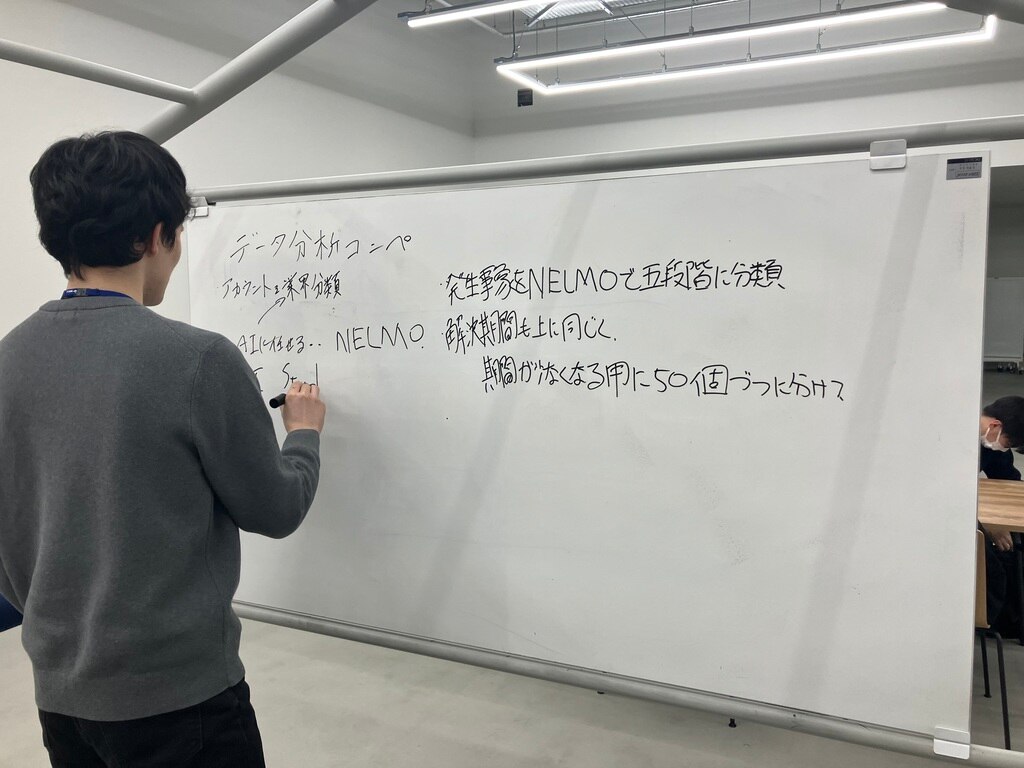 データ分析コンペ
・アカウントを業界分類
AIに任せる.. NELMO
・発生事象をNELMOで五段階に分類
解決期間も上に同じく、
期間が少なくなる順に50個づつに分けて